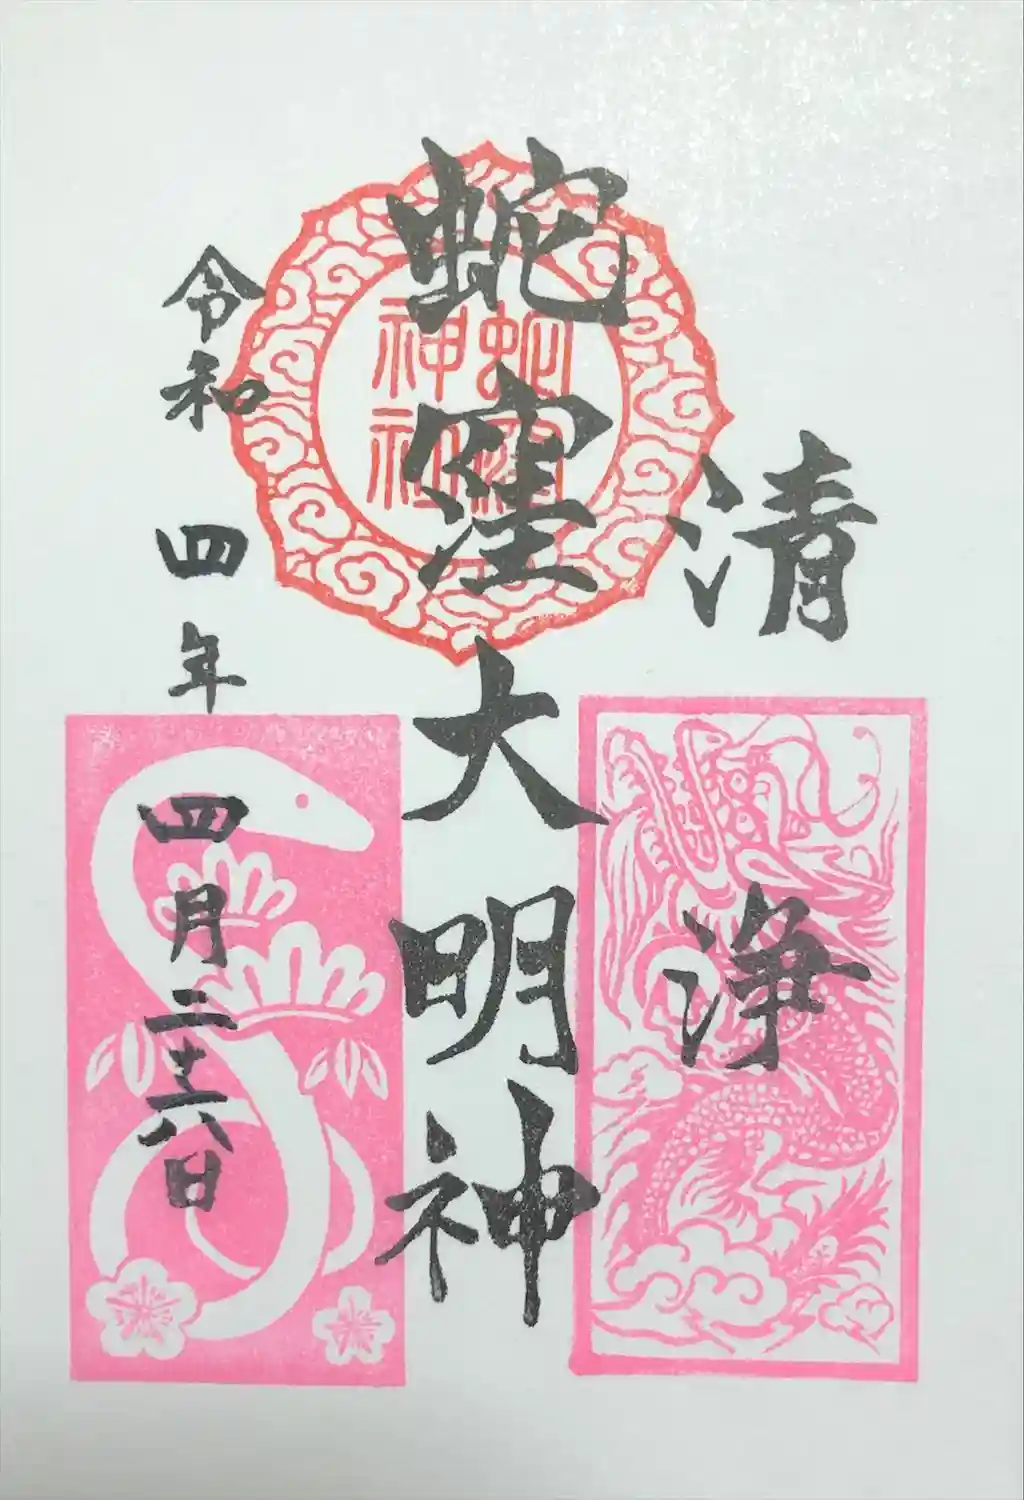 清浄
蛇窪大明神
蛇窪
神社
令和四年四月二十八日